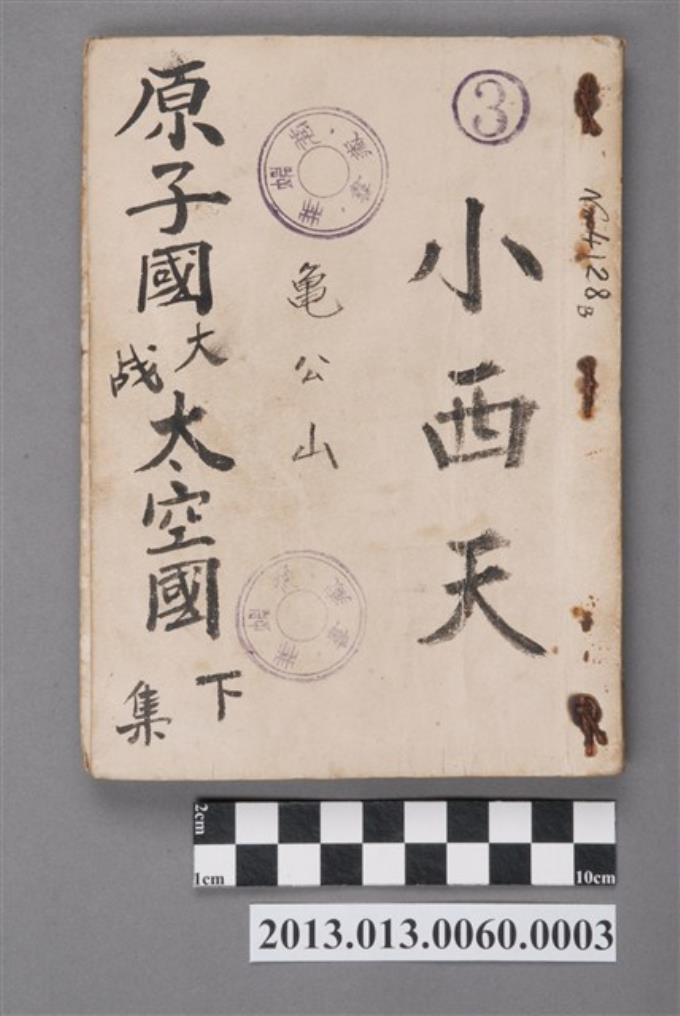 ③
小西天
No 4128B
亀公山
原子國大战太空國
下集
2cm
1cm
10cm
2013.013.0060.0003